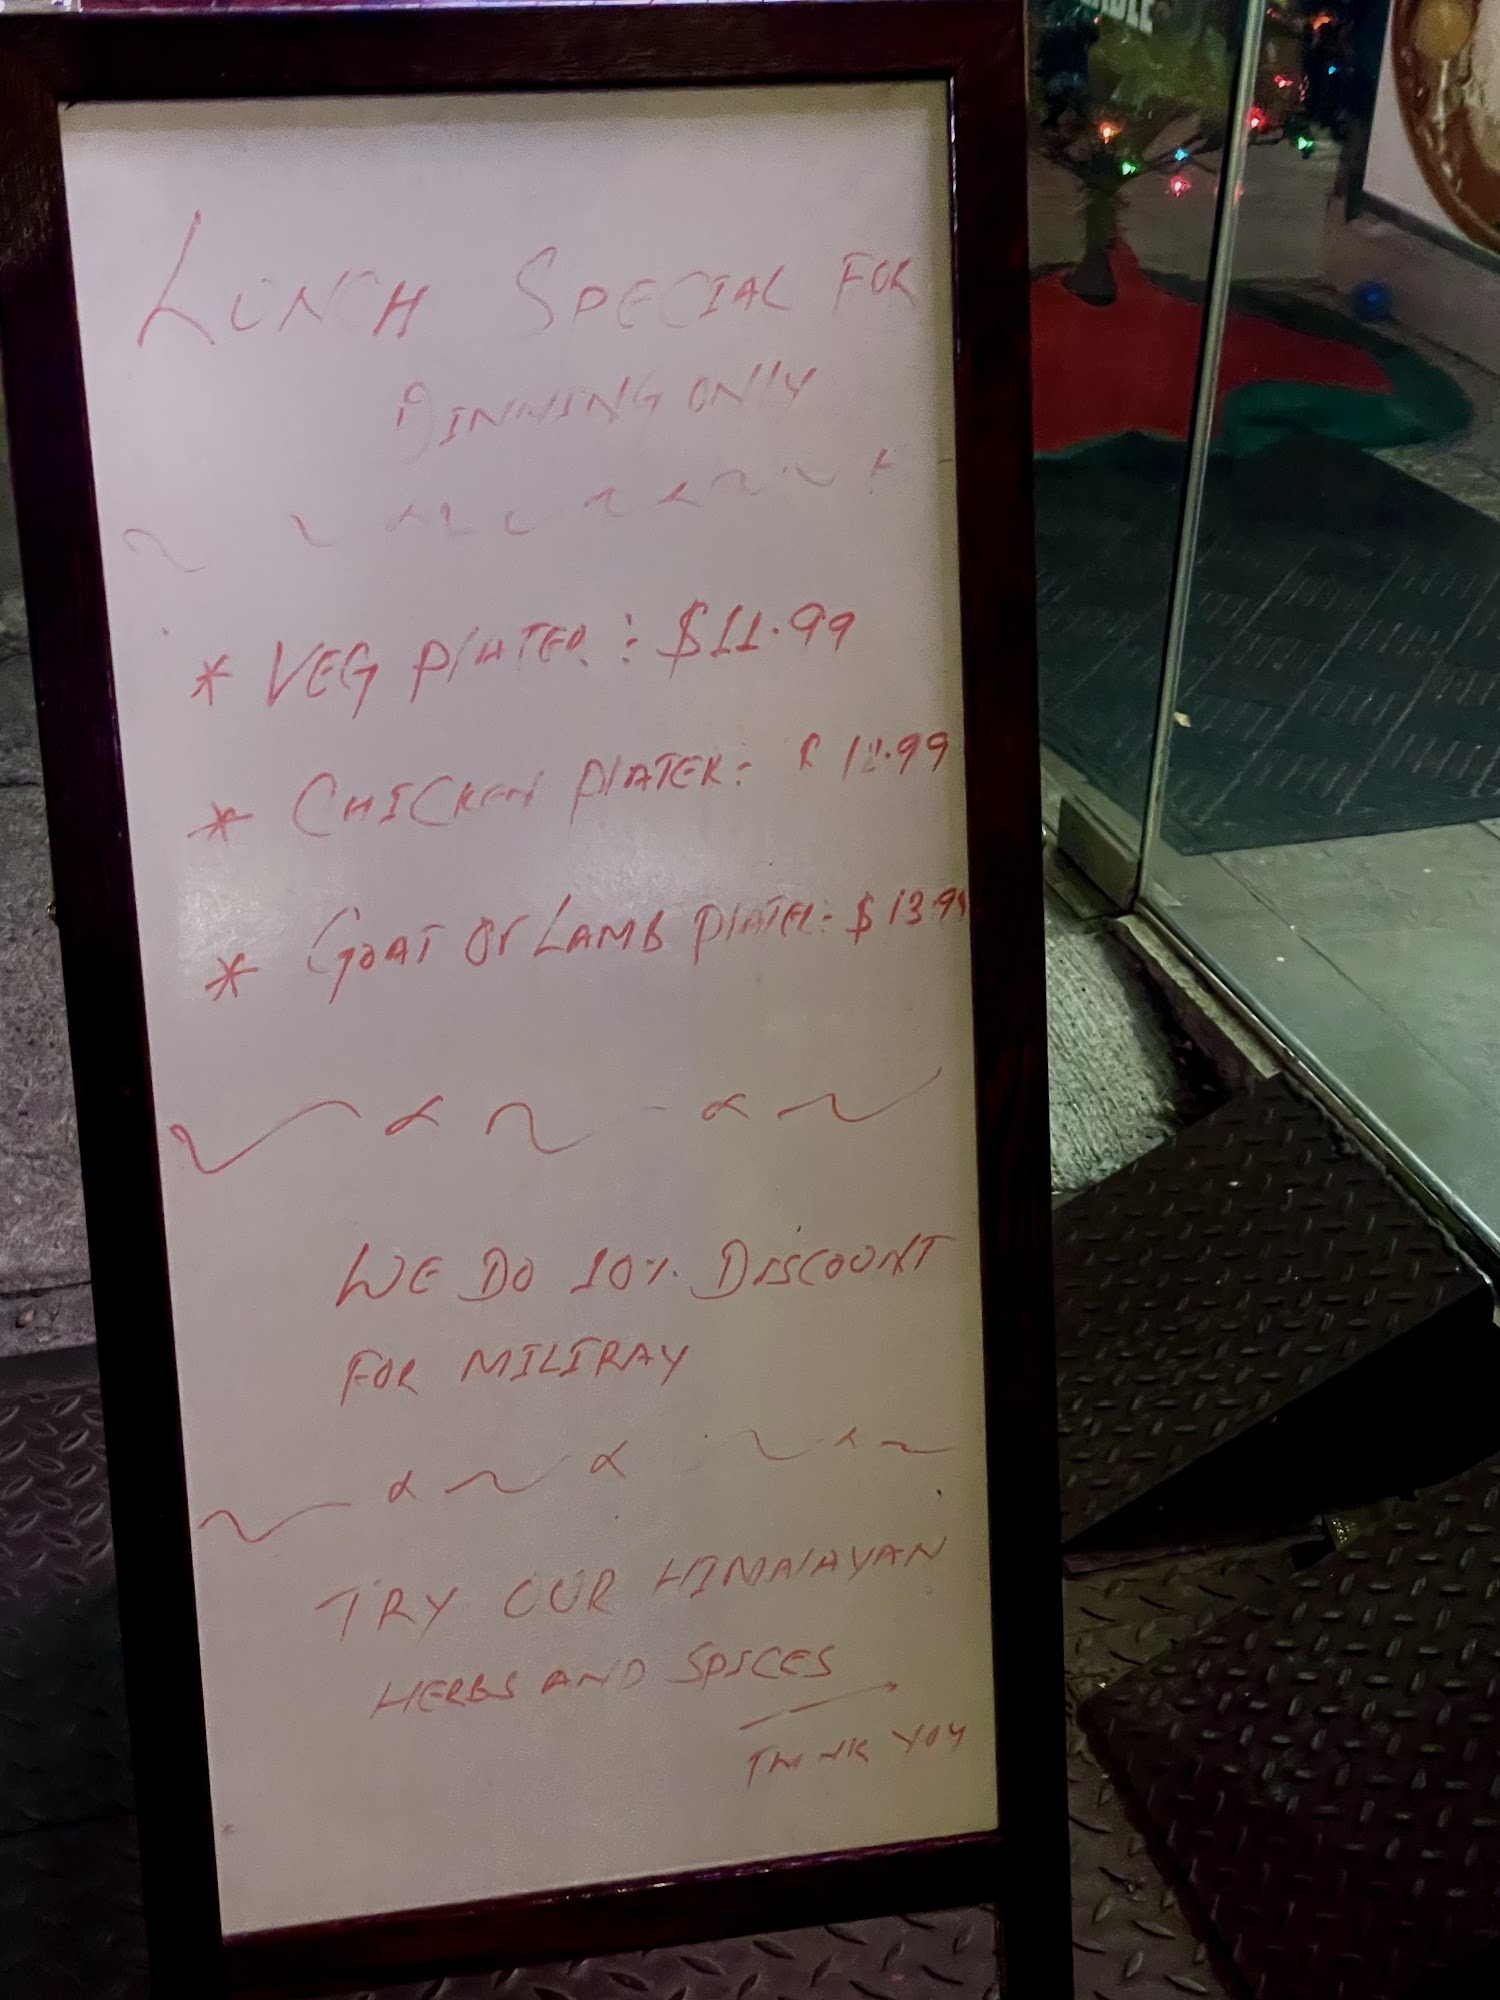 LUNCH SPECIAL FOR
DINNING ONLY
* VEG PLATER : $11.99
* CHICKEN PLATER : $ 12.99
* GOAT OR LAMB PLATER : $ 13.99
WE DO 10% DISCOUNT
FOR MILIRAY
TRY OUR HIMALAYAN
HERBS AND SPICES
THANK YOU